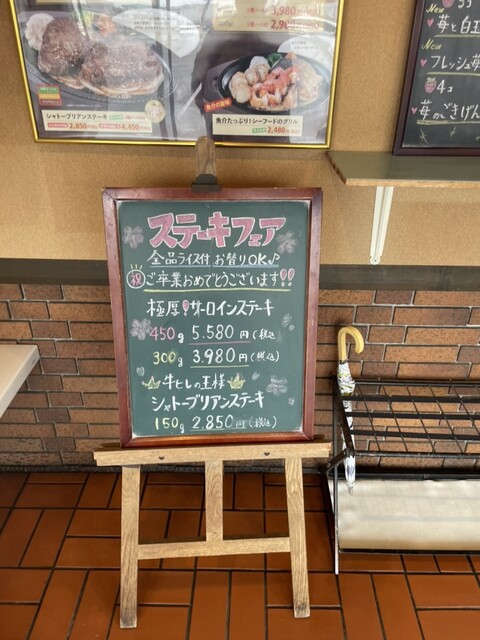 3,980
2,9
シャトーブリアンステーキ
2,850 4,450
魚介の旨味
魚介たっぷり!シーフードのグリル
2,480
New
苺と白玉
New
フレッシュ苺
4コ
苺のごきげん
ステーキフェア
全品ライス付 お替りOK♪
祝 ご卒業おめでとうございます!!
極厚!サーロインステーキ
450g 5.580円(税込
300g 3.980円(税込)
牛ヒレの王様
シャトーブリアンステーキ
150g 2.850円(税込)